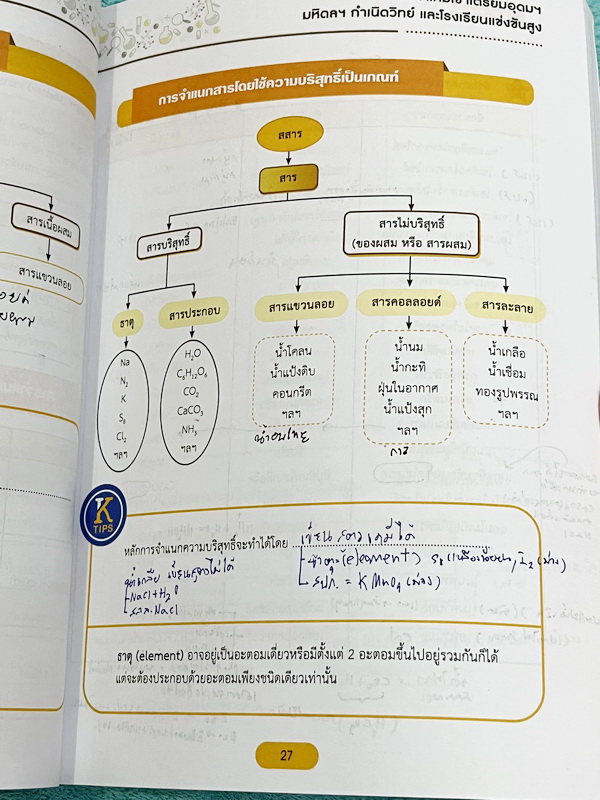 มหิดลฯ กำเนิดวิทย์ และโรงเรียนแข่งขันสูง
การจำแนกสารโดยใช้ความบริสุทธิ์เป็นเกณฑ์
สสาร
สาร
สารเนื้อผสม
สารแขวนลอย
สารบริสุทธิ์
สารไม่บริสุทธิ์
(ของผสม หรือ สารผสม)
ธาตุ
สารประกอบ
สารแขวนลอย
สารคอลลอยด์
สารละลาย
Na
N₂
K
S₈
Cl₂
ฯลฯ
H₂O
C₆H₁₂O₆
CO₂
CaCO₃
NH₃
ฯลฯ
น้ำโคลน
น้ำแป้งดิบ
คอนกรีต
ฯลฯ
น้ำนม
น้ำกะทิ
ฝุ่นในอากาศ
น้ำแป้งสุก
ฯลฯ
น้ำเกลือ
น้ำเชื่อม
ทองรูปพรรณ
ฯลฯ
K
TIPS
หลักการจำแนกความบริสุทธิ์จะทำได้โดย เขียนสูตรเคมีได้
ธาตุ (element)
สปก. = KMnO₄ (ม่วง)
น้ำเกลือ เขียนสูตรไม่ได้
NaCl + H₂O
NaCl
ธาตุ (element) อาจอยู่เป็นอะตอมเดี่ยวหรือมีตั้งแต่ 2 อะตอมขึ้นไปอยู่รวมกันก็ได้
แต่จะต้องประกอบด้วยอะตอมเพียงชนิดเดียวเท่านั้น
27